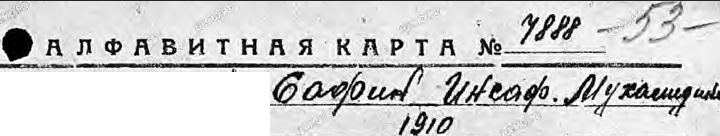 АЛФАВИТНАЯ КАРТА № 7888 -53-
Сафин Инсаф.
1910